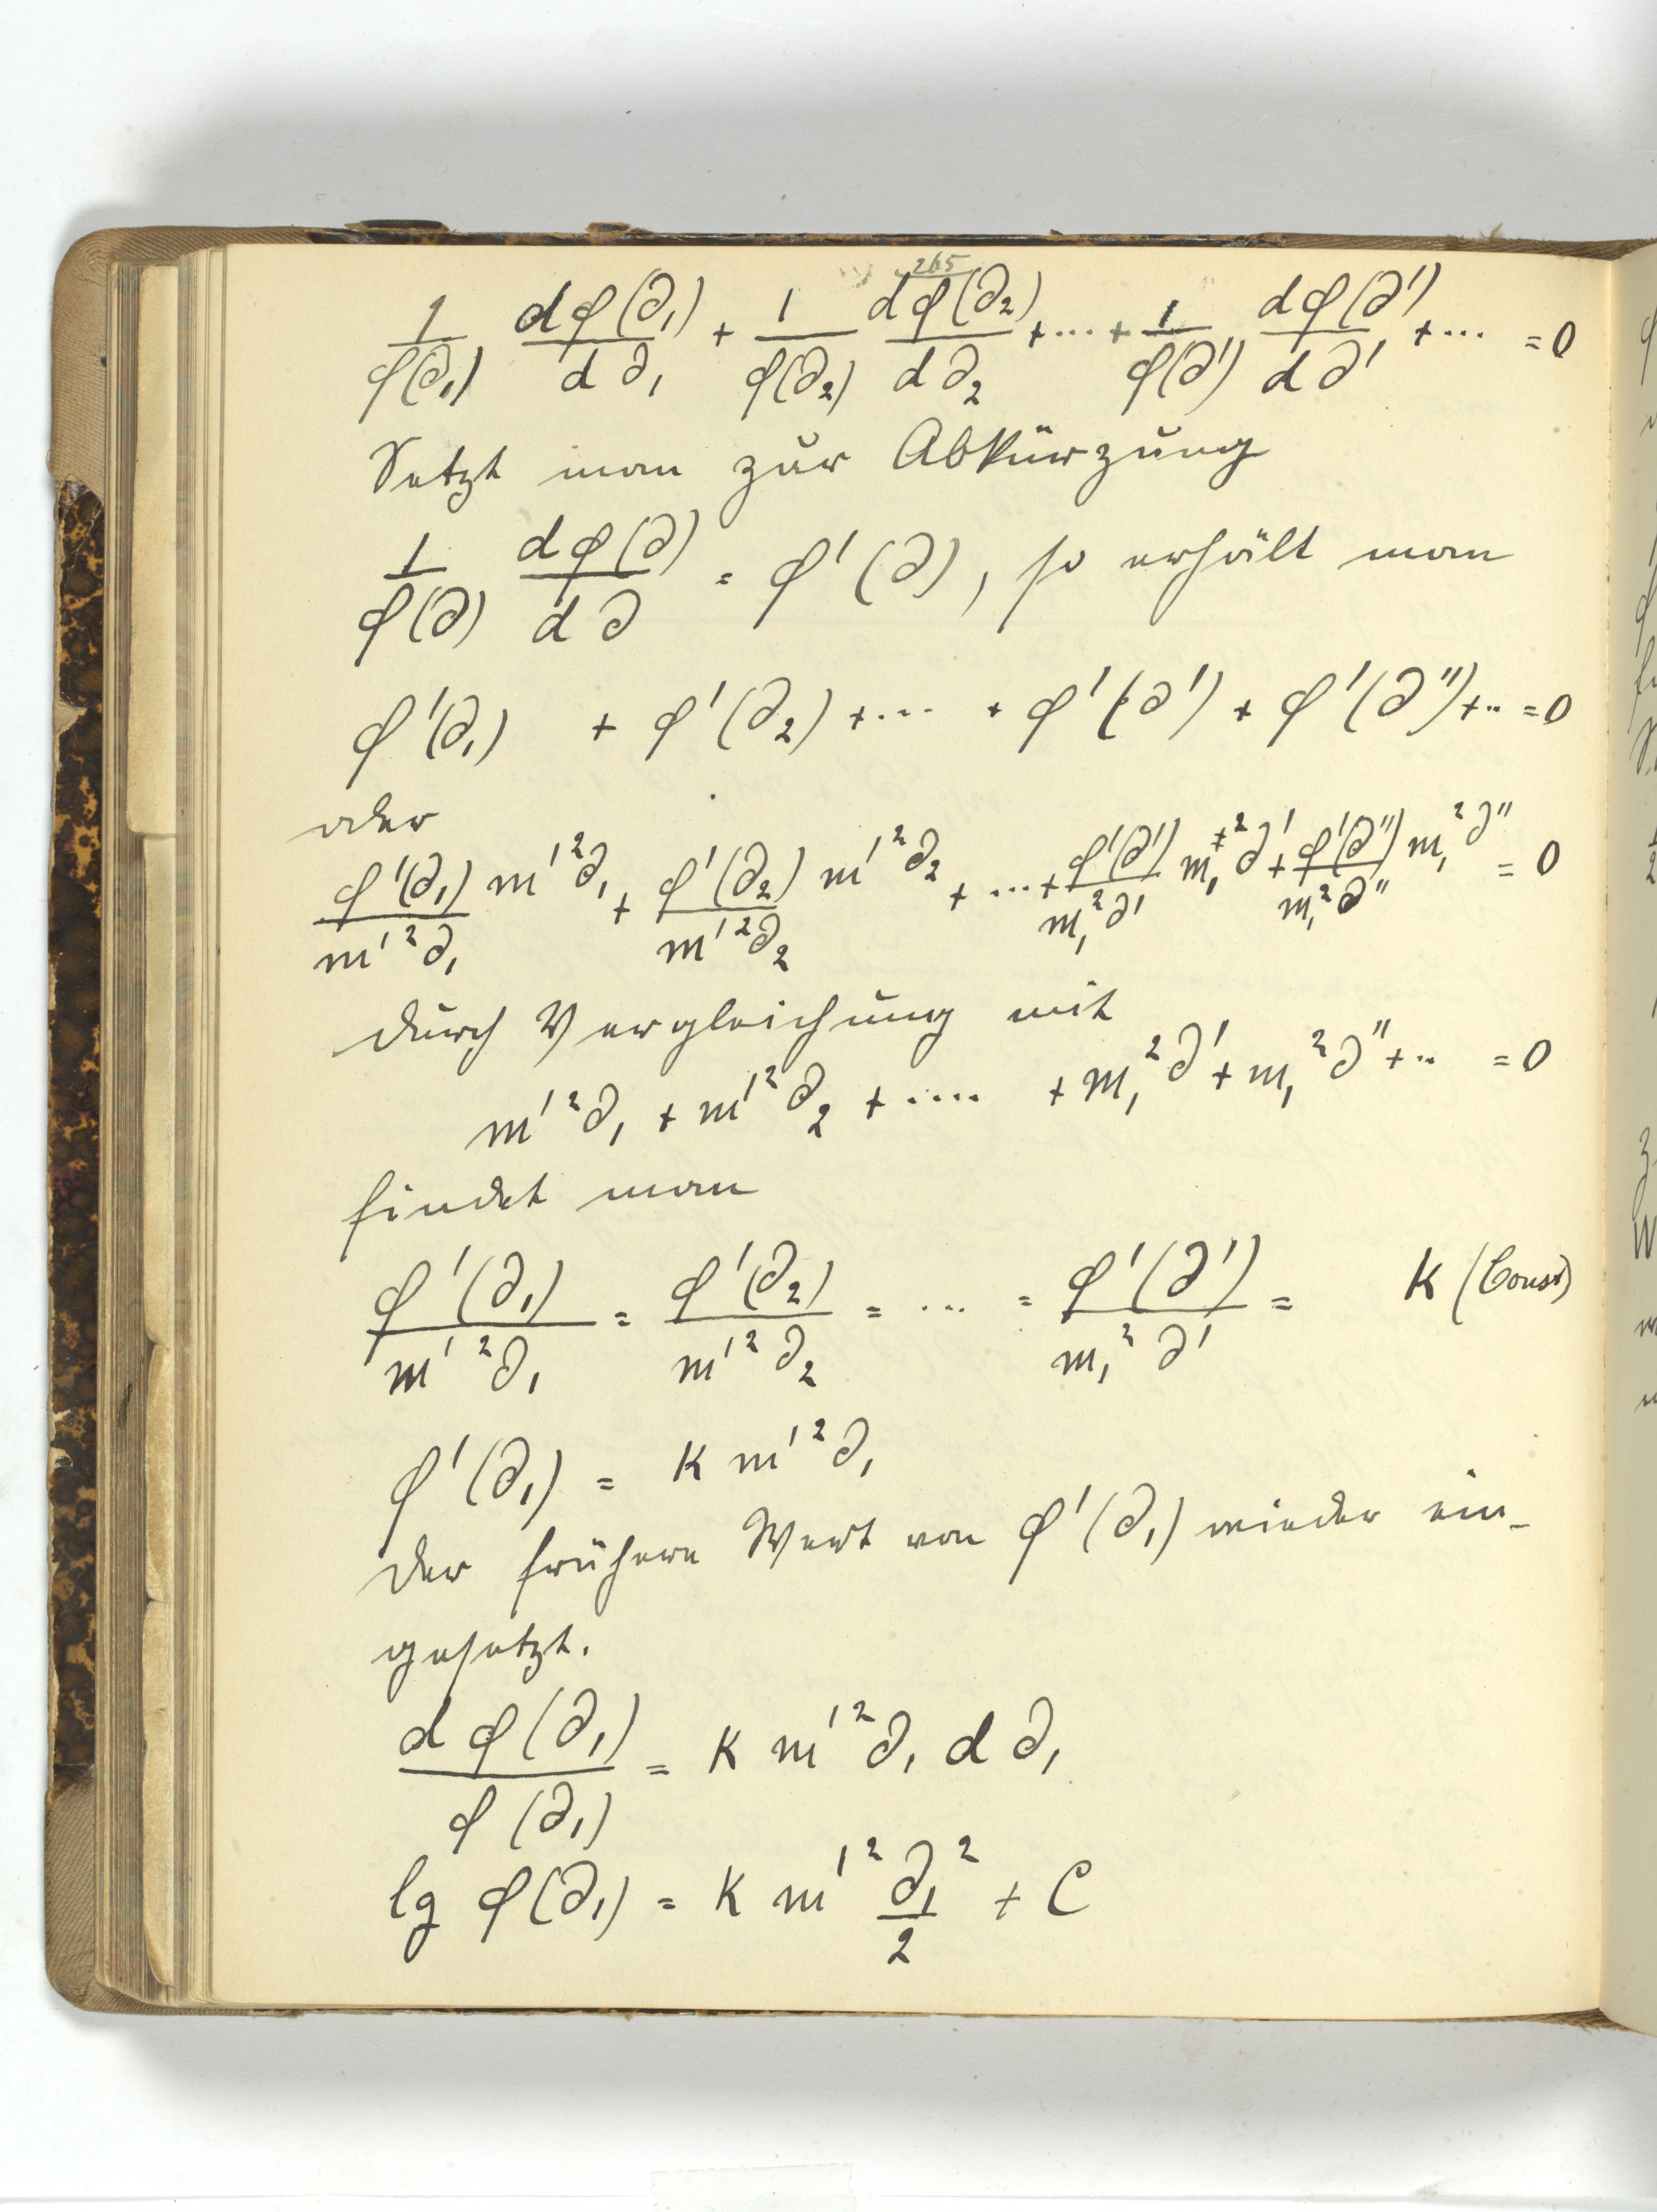 265
1/φ(∂₁) dφ(∂₁)/d∂₁ + 1/φ(∂₂) dφ(∂₂)/d∂₂ + ··· + 1/φ(∂') dφ(∂')/d∂' + ··· = 0
Setzt man zur Abkürzung
1/φ(∂) dφ(∂)/d∂ = φ'(∂), so erhält man
φ'(∂₁) + φ'(∂₂) + ···· + φ'(∂') + φ'(∂'') + ·· = 0
oder
φ'(∂₁)/m'²∂₁ m'²∂₁ + φ'(∂₂)/m'²∂₂ m'²∂₂ + ··· + φ'(∂')/m₁²∂' m₁²∂' + φ'(∂'')/m₁²∂'' m₁²∂'' = 0
durch Vergleichung mit
m'²∂₁ + m'²∂₂ + ···· + m₁²∂' + m₁²∂'' + ·· = 0
findet man
φ'(∂₁)/m'²∂₁ = φ'(∂₂)/m'²∂₂ = ··· = φ'(∂')/m₁²∂' = K (Const)
φ'(∂₁) = K m'²∂₁
Der frühere Wert von φ'(∂₁) wieder ein-
gesetzt.
dφ(∂₁)/φ(∂₁) = K m'²∂₁ d∂₁
lg φ(∂₁) = K m'² ∂₁²/2 + C